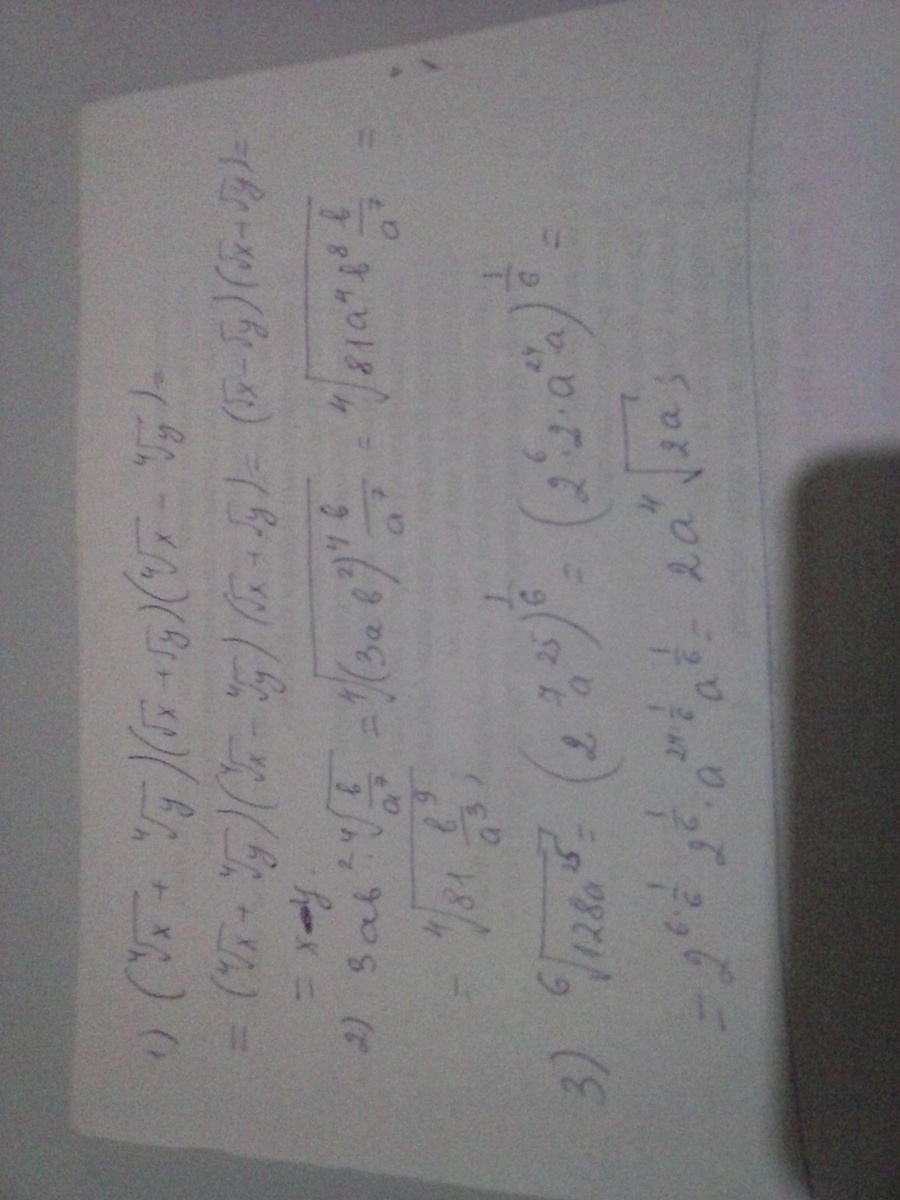 1) (⁴√x + ⁴√y)(√x + √y)(⁴√x - ⁴√y) =
= (⁴√x + ⁴√y)(⁴√x - ⁴√y)(√x + √y) = (√x - √y)(√x + √y) =
= x - y.
2) 3ab² · ⁴√(b/a⁷) = ⁴√((3ab²)⁴ b/a⁷) = ⁴√(81a⁴b⁸ b/a⁷) =
= ⁴√(81 b⁹/a³);
3) ⁶√(128a²⁵) = (2⁷a²⁵)^(1/6) = (2⁶·2·a²⁴a)^(1/6) =
= 2^(6·1/6) 2^(1/6) · a^(24·1/6) a^(1/6) = 2a⁴√(2a);